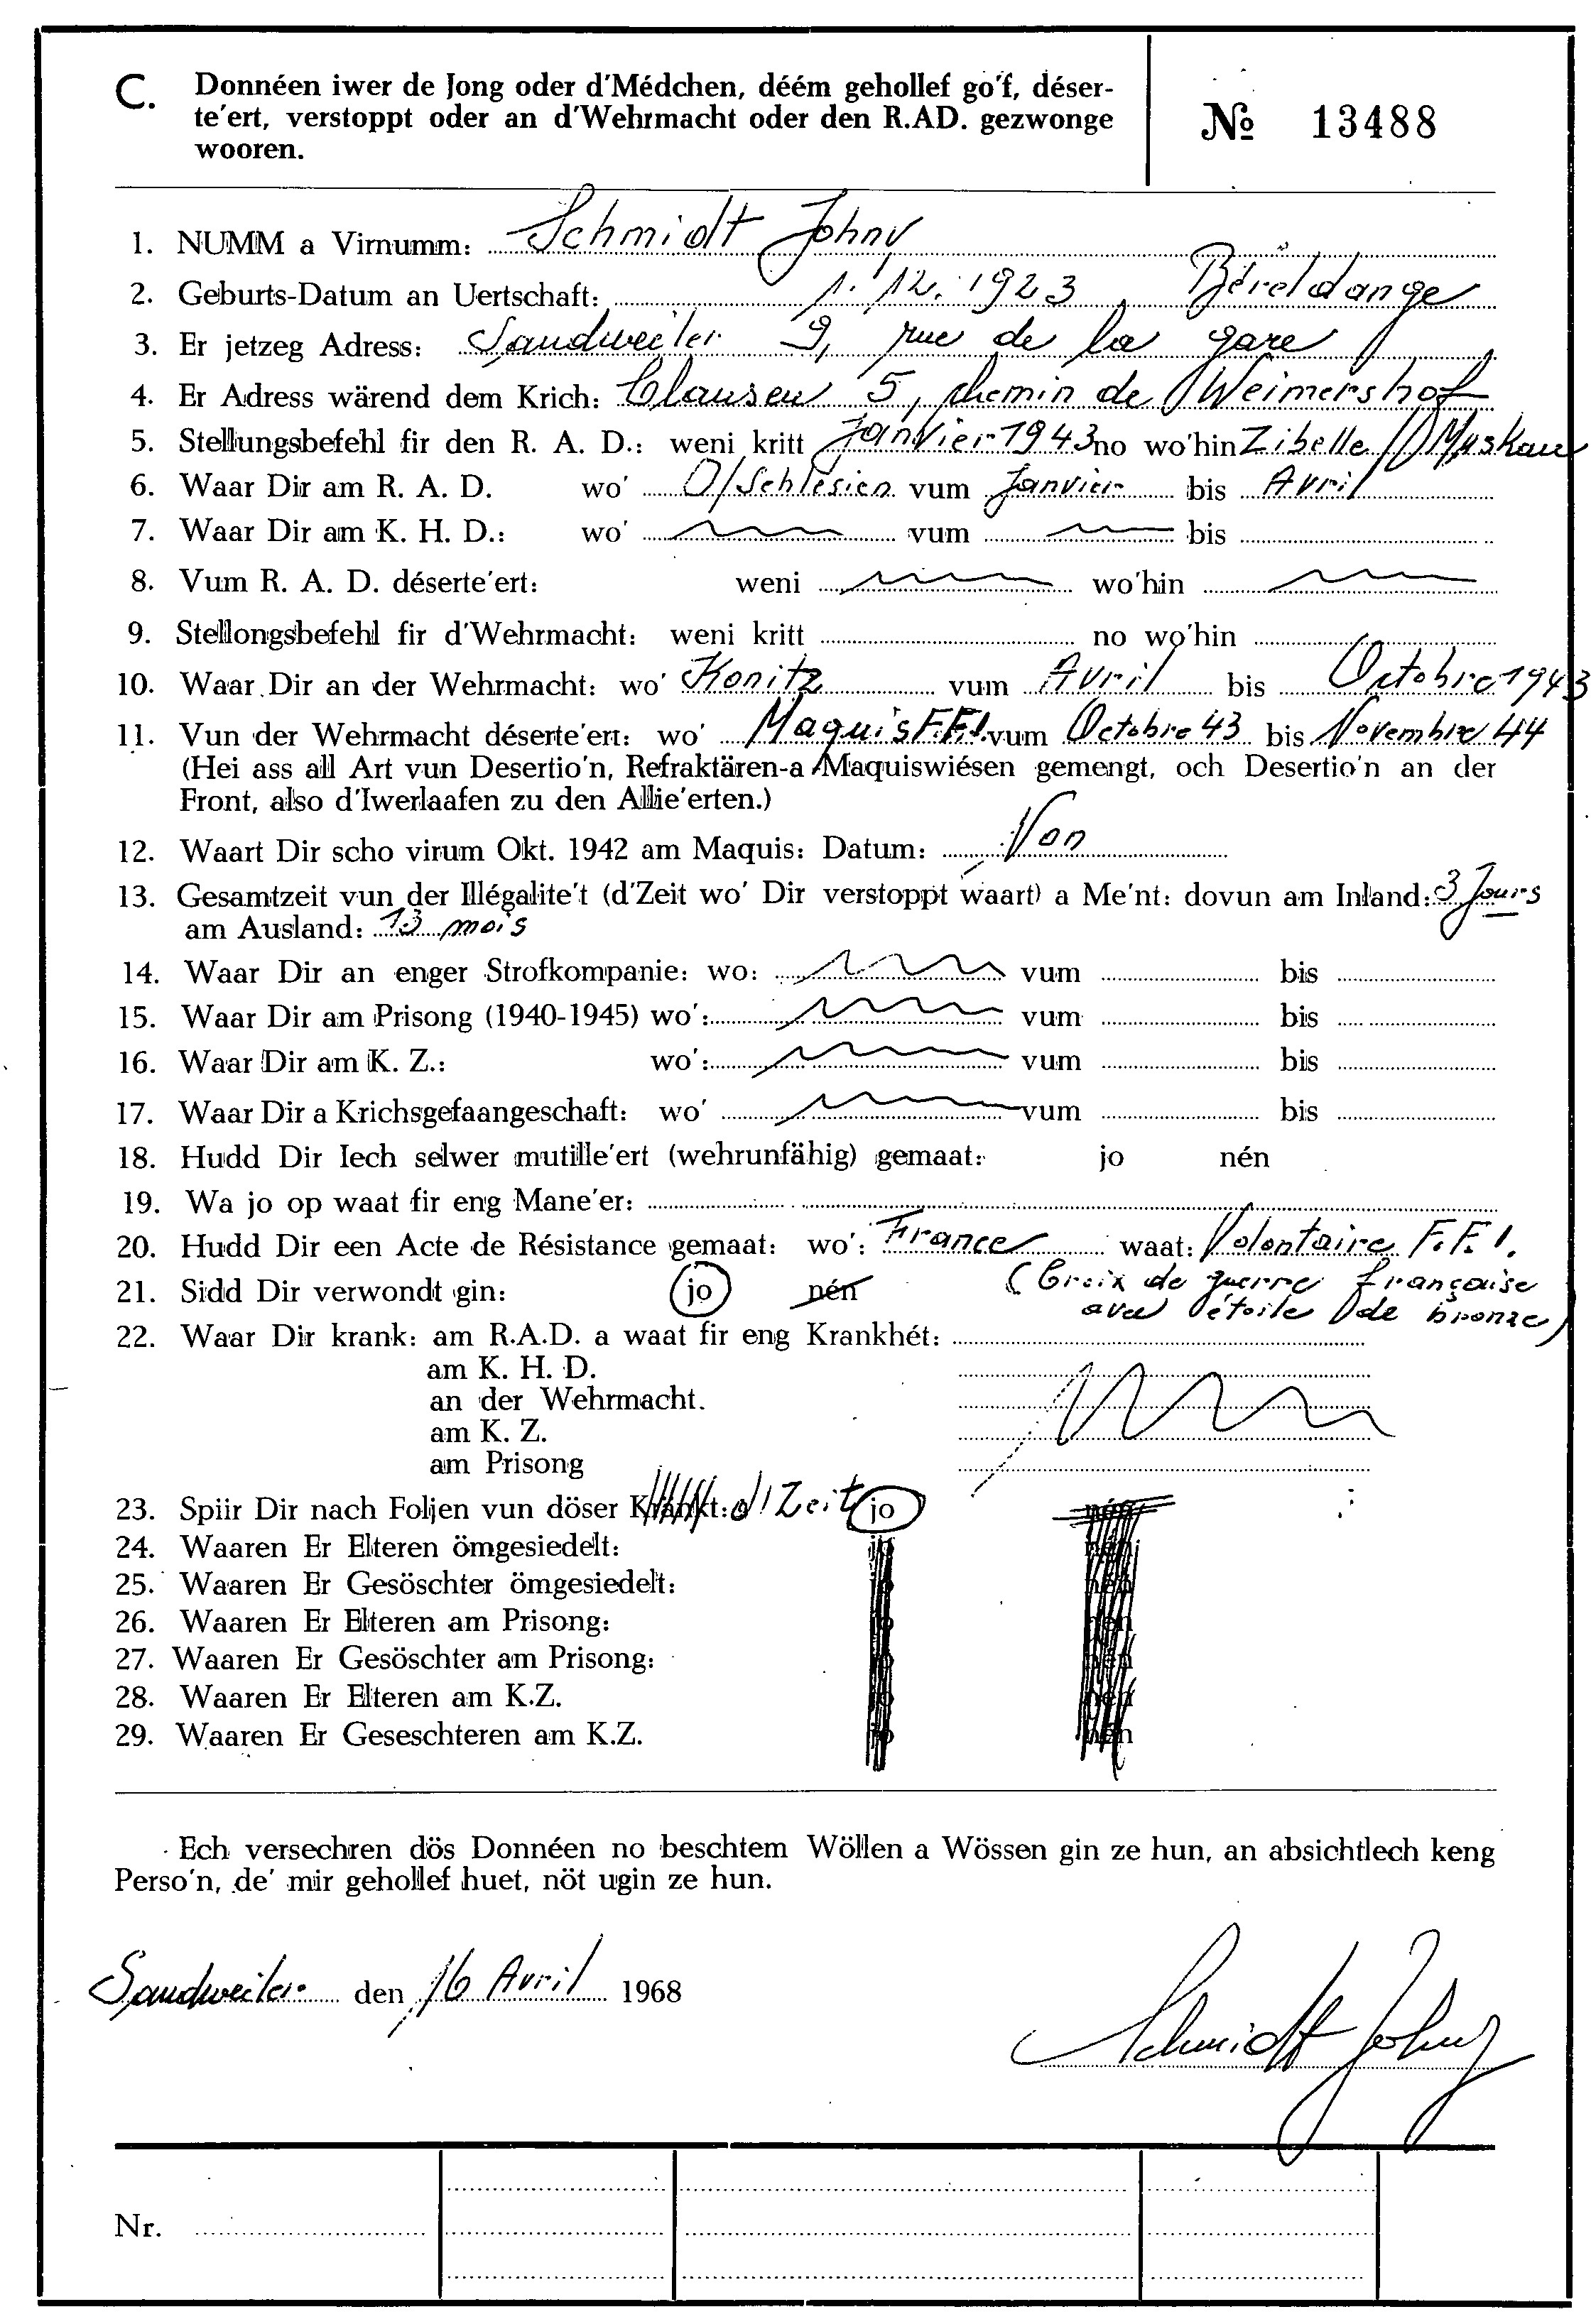 C. Donnéen iwer de Jong oder d'Médchen, déém gehollef go'f, déser-
te'ert, verstoppt oder an d'Wehrmacht oder den R.AD. gezwonge
wooren.
№ 13488
1. NUMM a Virnumm: Schmidt Johny
2. Geburts-Datum an Uertschaft: 1. 12. 1923 Béreldange
3. Er jetzeg Adress: Sandweiler 9, rue de la gare
4. Er Adress wärend dem Krich: Clausen 5, chemin de Weimershof
5. Stellungsbefehl fir den R. A. D.: weni kritt Janvier 1943 no wo'hin Zibelle / Muskau
6. Waar Dir am R. A. D. wo' O/Schlesien vum Janvier bis Avril
7. Waar Dir am K. H. D.: wo' vum bis
8. Vum R. A. D. déserte'ert: weni wo'hin
9. Stellongsbefehl fir d'Wehrmacht: weni kritt no wo'hin
10. Waar Dir an der Wehrmacht: wo' Konitz vum Avril bis Octobre 1943
11. Vun der Wehrmacht déserte'ert: wo' Maquis F.F.I. vum Octobre 43 bis Novembre 44
(Hei ass all Art vun Desertio'n, Refraktären-a Maquiswiésen gemengt, och Desertio'n an der
Front, also d'Iwerlaafen zu den Allie'erten.)
12. Waart Dir scho virum Okt. 1942 am Maquis: Datum: Non
13. Gesamtzeit vun der Illégalite't (d'Zeit wo' Dir verstoppt waart) a Me'nt: dovun am Inland: 3 Jours
am Ausland: 13 mois
14. Waar Dir an enger Strofkompanie: wo: vum bis
15. Waar Dir am Prisong (1940-1945) wo': vum bis
16. Waar Dir am K. Z.: wo': vum bis
17. Waar Dir a Krichsgefaangeschaft: wo' vum bis
18. Hudd Dir Iech selwer mutille'ert (wehrunfähig) gemaat: jo nén
19. Wa jo op waat fir eng Mane'er:
20. Hudd Dir een Acte de Résistance gemaat: wo': France waat: Volontaire F.F.I.
21. Sidd Dir verwondt gin: jo nén (Croix de guerre française
avec étoile de bronze)
22. Waar Dir krank: am R.A.D. a waat fir eng Krankhét:
am K. H. D.
an der Wehrmacht.
am K. Z.
am Prisong
23. Spiir Dir nach Foljen vun döser Krankt: d'Zeit jo nén
24. Waaren Er Elteren ömgesiedelt: jo nén
25. Waaren Er Gesöschter ömgesiedelt: jo nén
26. Waaren Er Elteren am Prisong: jo nén
27. Waaren Er Gesöschter am Prisong: jo nén
28. Waaren Er Elteren am K.Z. jo nén
29. Waaren Er Geseschteren am K.Z. jo nén
Ech versechren dös Donnéen no beschtem Wöllen a Wössen gin ze hun, an absichtlech keng
Perso'n, de' mir gehollef huet, nöt ugin ze hun.
Sandweiler den 16 Avril 1968
Schmidt Johny
Nr.